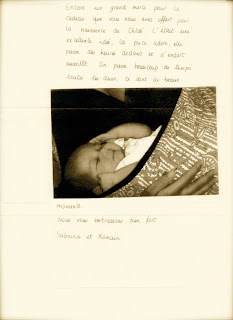 Encore un grand merci pour le
cadeau que vous nous avez offert pour
la naissance de Chloé. C'était une
excellente idée, la puce adore, elle
passe des heures dedans et s'endort
aussitôt. On passe beaucoup de temps
toutes les deux, ce sont de beaux
moments.
Nous vous embrassons bien fort
Sabrina et Romain